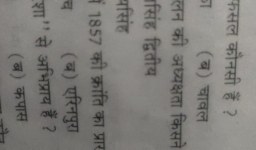 फसल कौनसी है ?
(ब) चावल
की अध्यक्षता किसने
सिंह द्वितीय
सिंह
1857 की क्रांति का
(ब) एरिनपुरा
'' से अभिप्राय है ?
(ब) कपास